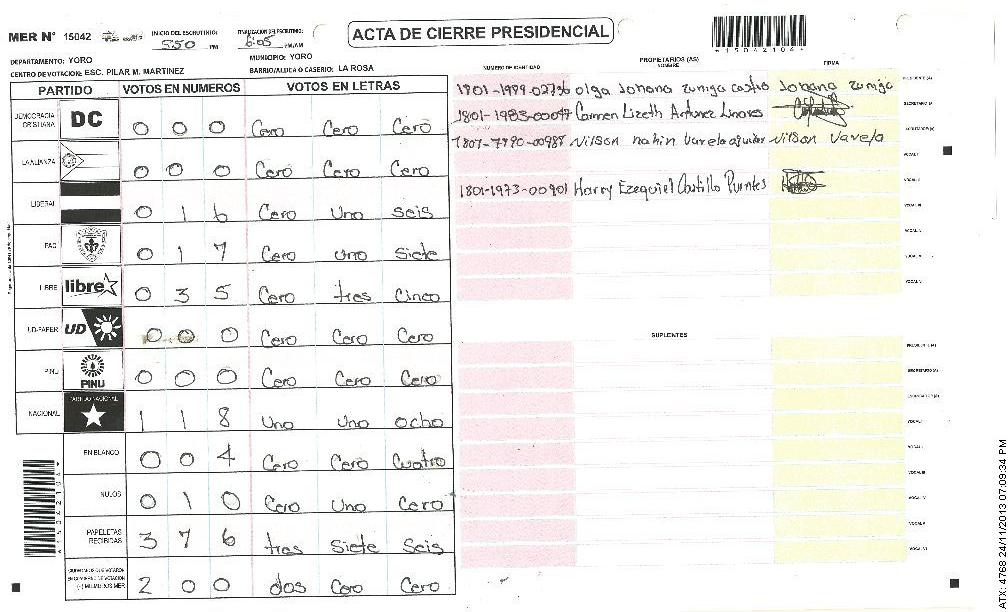 MER N° 15042
INICIO DEL ESCRUTINIO: 5:50 PM
FINALIZACION DEL ESCRUTINIO: 6:05 PM/AM
ACTA DE CIERRE PRESIDENCIAL
*15042104*
DEPARTAMENTO: YORO
MUNICIPIO: YORO
CENTRO DE VOTACION: ESC. PILAR M. MARTINEZ
BARRIO/ALDEA O CASERIO: LA ROSA
PARTIDO VOTOS EN NUMEROS VOTOS EN LETRAS
DEMOCRACIA CRISTIANA DC 0 0 0 Cero Cero Cero
LA ALIANZA 0 0 0 Cero Cero Cero
LIBERAL 0 1 6 Cero Uno seis
PAC 0 1 7 Cero uno Siete
LIBRE libre 0 3 5 Cero tres Cinco
UD-FAPER UD 0 0 0 Cero Cero Cero
PINU PINU 0 0 0 Cero Cero Cero
NACIONAL PARTIDO NACIONAL 1 1 8 Uno Uno ocho
EN BLANCO 0 0 4 Cero Cero Cuatro
NULOS 0 1 0 Cero Uno Cero
PAPELETAS RECIBIDAS 3 7 6 tres Siete Seis
CIUDADANOS QUE VOTARON EN CUADERNO DE VOTACION (+) MIEMBROS MER 2 0 0 dos Cero Cero
PROPIETARIOS (AS)
NUMERO DE IDENTIDAD NOMBRE FIRMA
1801-1989-02736 Olga Johana zuniga castro Johana zuniga PRESIDENTE (A)
1801-1983-00047 Carmen Lizeth Antunez Linares SECRETARIO (A)
1807-1990-00988 Nilson nahin Varela aguilar Nilson Varela ESCRUTADOR (A)
VOCAL I
1801-1973-00901 Harry Ezequiel Castillo Puntes VOCAL II
VOCAL III
VOCAL IV
VOCAL V
VOCAL VI
SUPLENTES
PRESIDENTE (A)
SECRETARIO (A)
ESCRUTADOR (A)
VOCAL I
VOCAL II
VOCAL III
VOCAL IV
VOCAL V
VOCAL VI
ATX: 4768 24/11/2013 07:09:34 PM